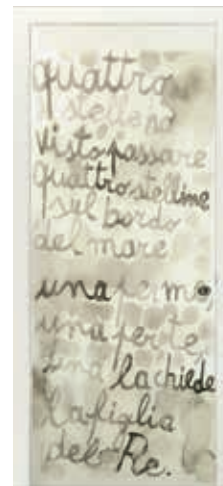 quattro
stelle ho
visto passare
quattro stelline
sul bordo
del mare
una
una
una la chiede
la figlia
del Re.